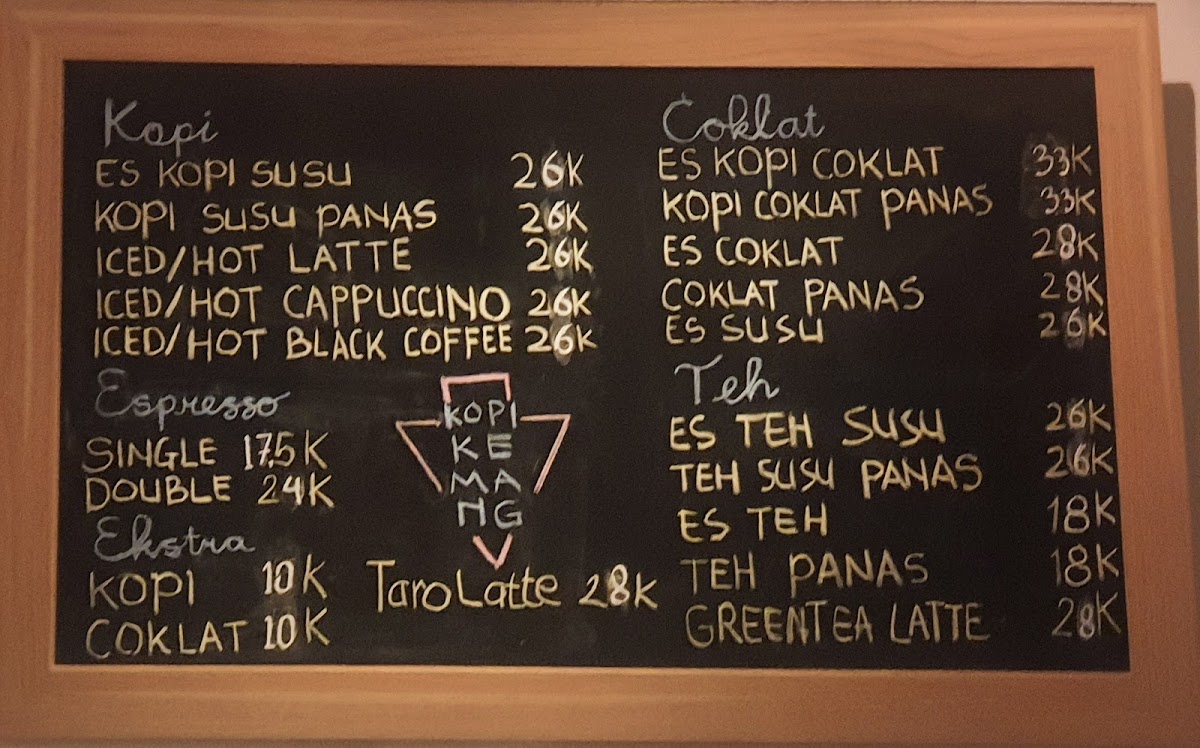 Kopi
ES KOPI SUSU 26K
KOPI SUSU PANAS 26K
ICED/HOT LATTE 26K
ICED/HOT CAPPUCCINO 26K
ICED/HOT BLACK COFFEE 26K
Espresso
SINGLE 17.5K
DOUBLE 24K
Ekstra
KOPI 10K
COKLAT 10K
KOPI
KE
MA
NG
Taro Latte 28K
Coklat
ES KOPI COKLAT 33K
KOPI COKLAT PANAS 33K
ES COKLAT 28K
COKLAT PANAS 28K
ES SUSU 26K
Teh
ES TEH SUSU 26K
TEH SUSU PANAS 26K
ES TEH 18K
TEH PANAS 18K
GREENTEA LATTE 28K